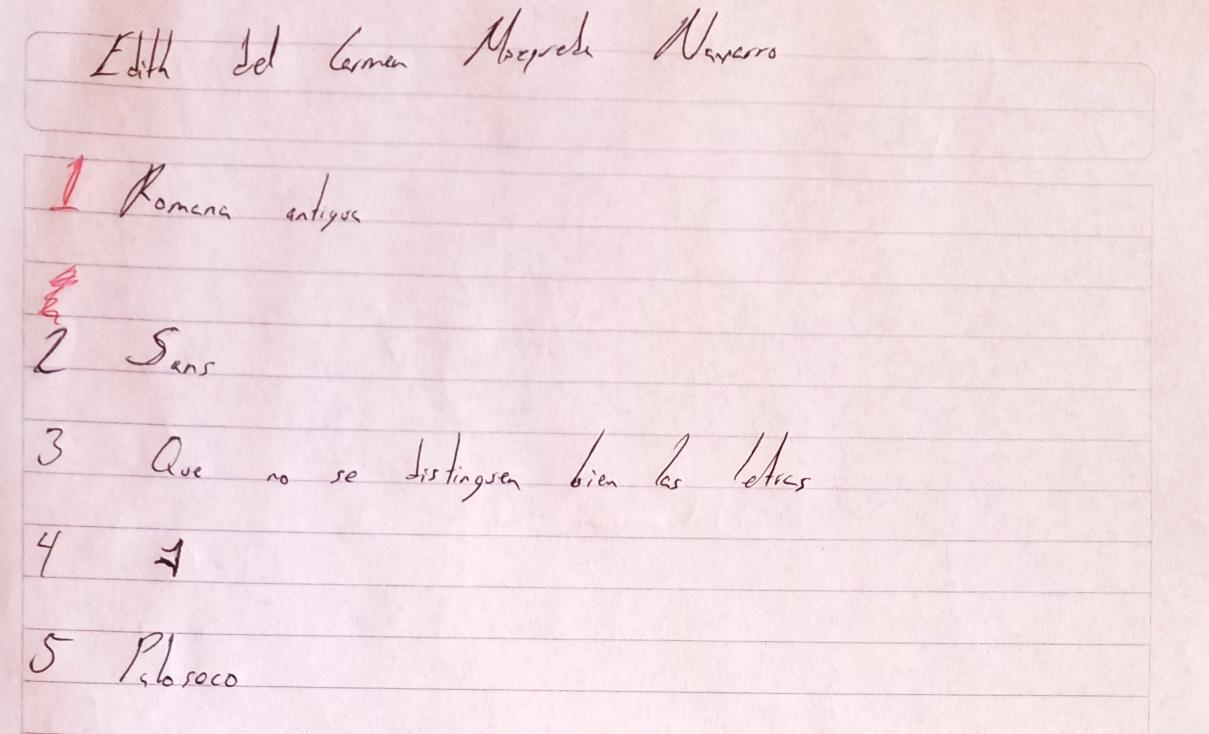 Edith del Carmen Navarro
1 Romana antigua
2 Sans
3 Que no se distinguen bien las letras
4 1
5 Paloseco